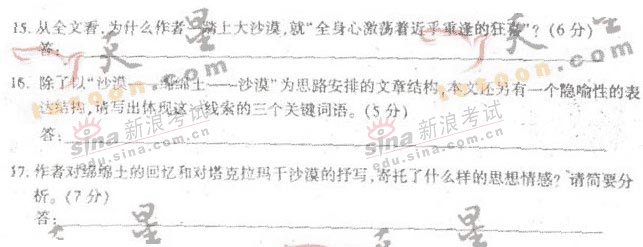 15. 从全文看,为什么作者一踏上大沙漠,就“全身心激荡着近乎重逢的狂喜”?(6分)
答:
16. 除了以“沙漠——绵绵土——沙漠”为思路安排的文章结构,本文还另有一个隐喻性的表
达结构,请写出体现这一线索的三个关键词语。(5分)
答:
sina 新浪考试
edu.sina.com.cn
sina 新浪考试
edu.sina.com.cn
17. 作者对绵绵土的回忆和对塔克拉玛干沙漠的抒写,寄托了什么样的思想情感?请简要分
析。(7分)
答: